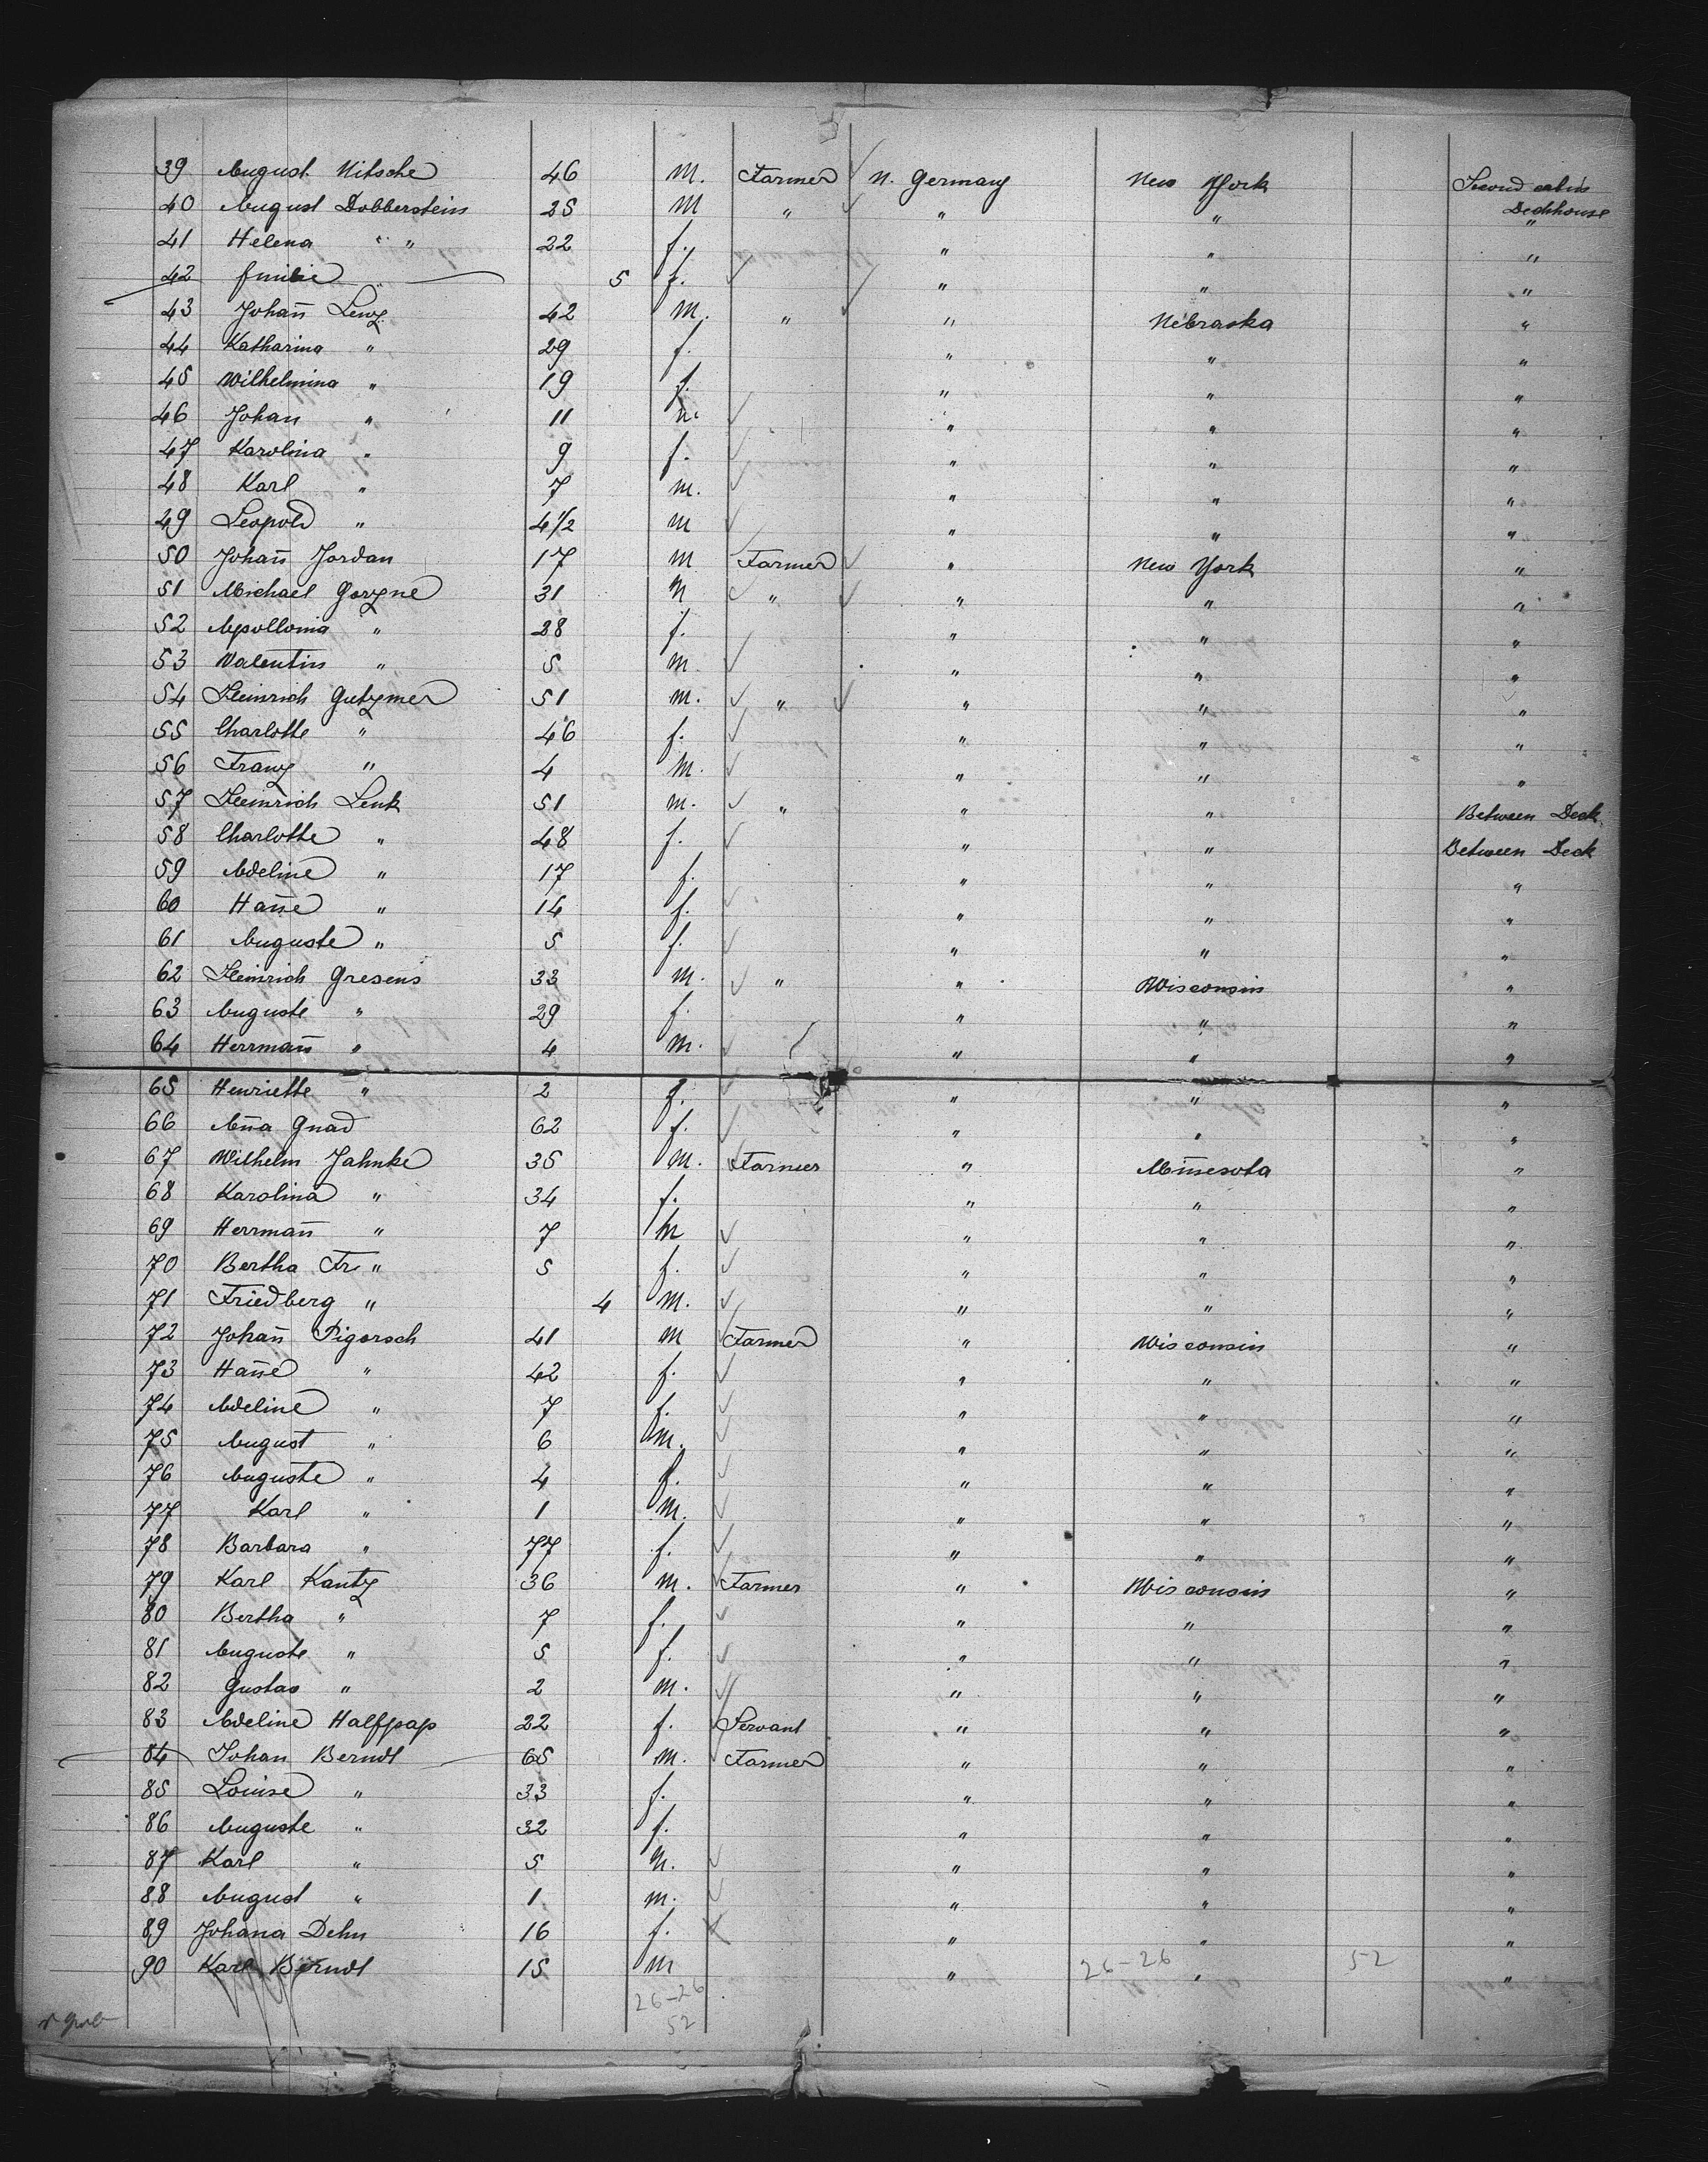 39 August Nitsche 46 M. Farmer N. Germany New York Second cabin Deckhouse
40 August Dobberstein 25 M " " " "
41 Helena " 22 f. " " "
42 Emilie " 5 f. " " "
43 Johañ Lenz 42 M. " " Nebraska "
44 Katharina " 29 f. " " "
45 Wilhelmina " 19 f. " " "
46 Johan " 11 m. " " "
47 Karolina " 9 f. " " "
48 Karl " 7 m. " " "
49 Leopold " 4 1/2 m " " "
50 Johañ Jordan 17 m Farmer " New York "
51 Michael Gorzne 31 M " " " "
52 Apollonia " 28 f. " " "
53 Valentin " 5 m. " " "
54 Heinrich Gutzmer 51 m. " " " "
55 Charlotte " 46 f. " " "
56 Franz " 4 m. " " "
57 Heinrich Lenk 51 m. " " " Between Deck
58 Charlotte " 48 f. " " Between Deck
59 Adeline " 17 f. " " "
60 Hañe " 14 f. " " "
61 Auguste " 5 f. " " "
62 Heinrich Gresens 33 m. " " Wisconsin "
63 Auguste " 29 f. " " "
64 Herrmañ " 4 m. " " "
65 Henriette " 2 f. " " "
66 Aña Gnad 62 f. " " "
67 Wilhelm Jahnke 35 m. Farmer " Miñesota "
68 Karolina " 34 f. " " "
69 Herrmañ " 7 m " " "
70 Bertha Fr. " 5 f. " " "
71 Friedberg " 4 m. " " "
72 Johañ Pigorsch 41 m Farmer " Wisconsin "
73 Hañe " 42 f. " " "
74 Adeline " 7 f. " " "
75 August " 6 m. " " "
76 Auguste " 4 f. " " "
77 Karl " 1 m. " " "
78 Barbara " 77 f. " " "
79 Karl Kantz 36 m. Farmer " Wisconsin "
80 Bertha " 7 f. " " "
81 Auguste " 5 f. " " "
82 Gustav " 2 m. " " "
83 Adeline Halfpap 22 f. Servant " " "
84 Johan Berndt 65 m. Farmer " " "
85 Louise " 33 f. " " "
86 Auguste " 32 f. " " "
87 Karl " 5 m. " " "
88 August " 1 m. " " "
89 Johana Dehn 16 f. " " "
90 Karl Berndt 15 m " 26-26 " 52 "
26-26
52